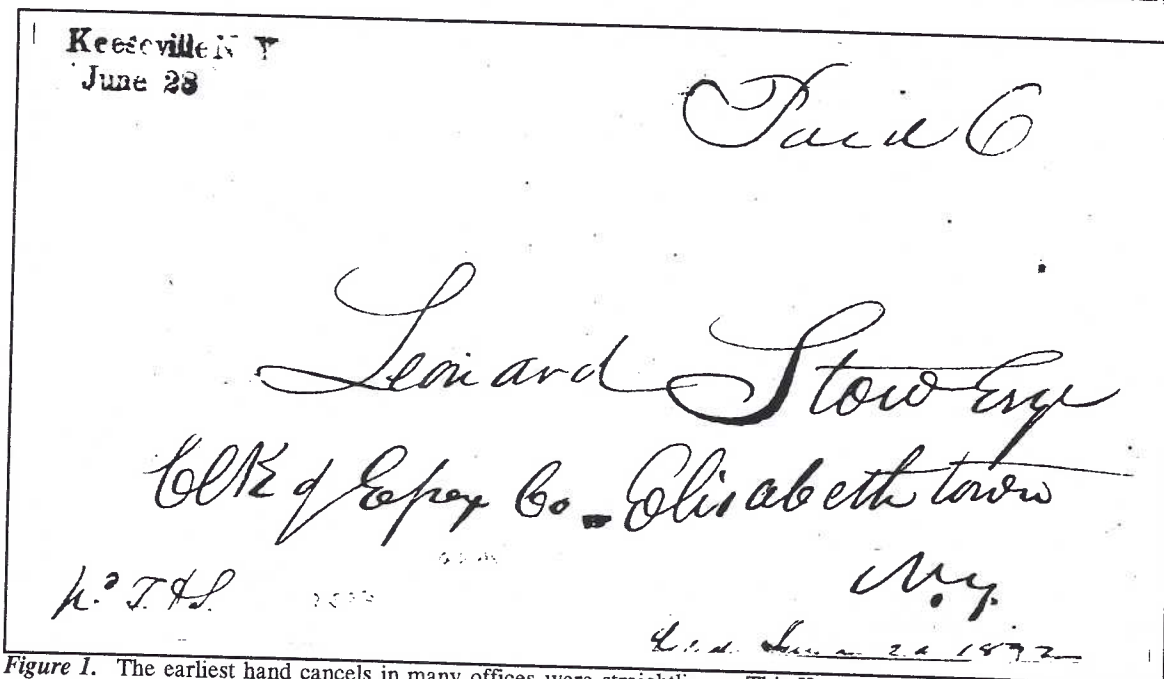 Keeseville N Y
June 28
Paid 6
Leonard Stow Esqr
Clk of Essex Co. Elisabethtown
N.Y.
Figure 1. The earliest hand cancels in many offices were straightline